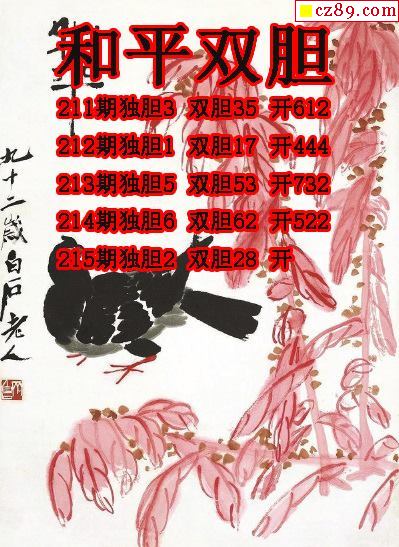 cz89.com
和平双胆
211期独胆3 双胆35 开612
212期独胆1 双胆17 开444
213期独胆5 双胆53 开732
214期独胆6 双胆62 开522
215期独胆2 双胆28 开
九十二歲白石老人